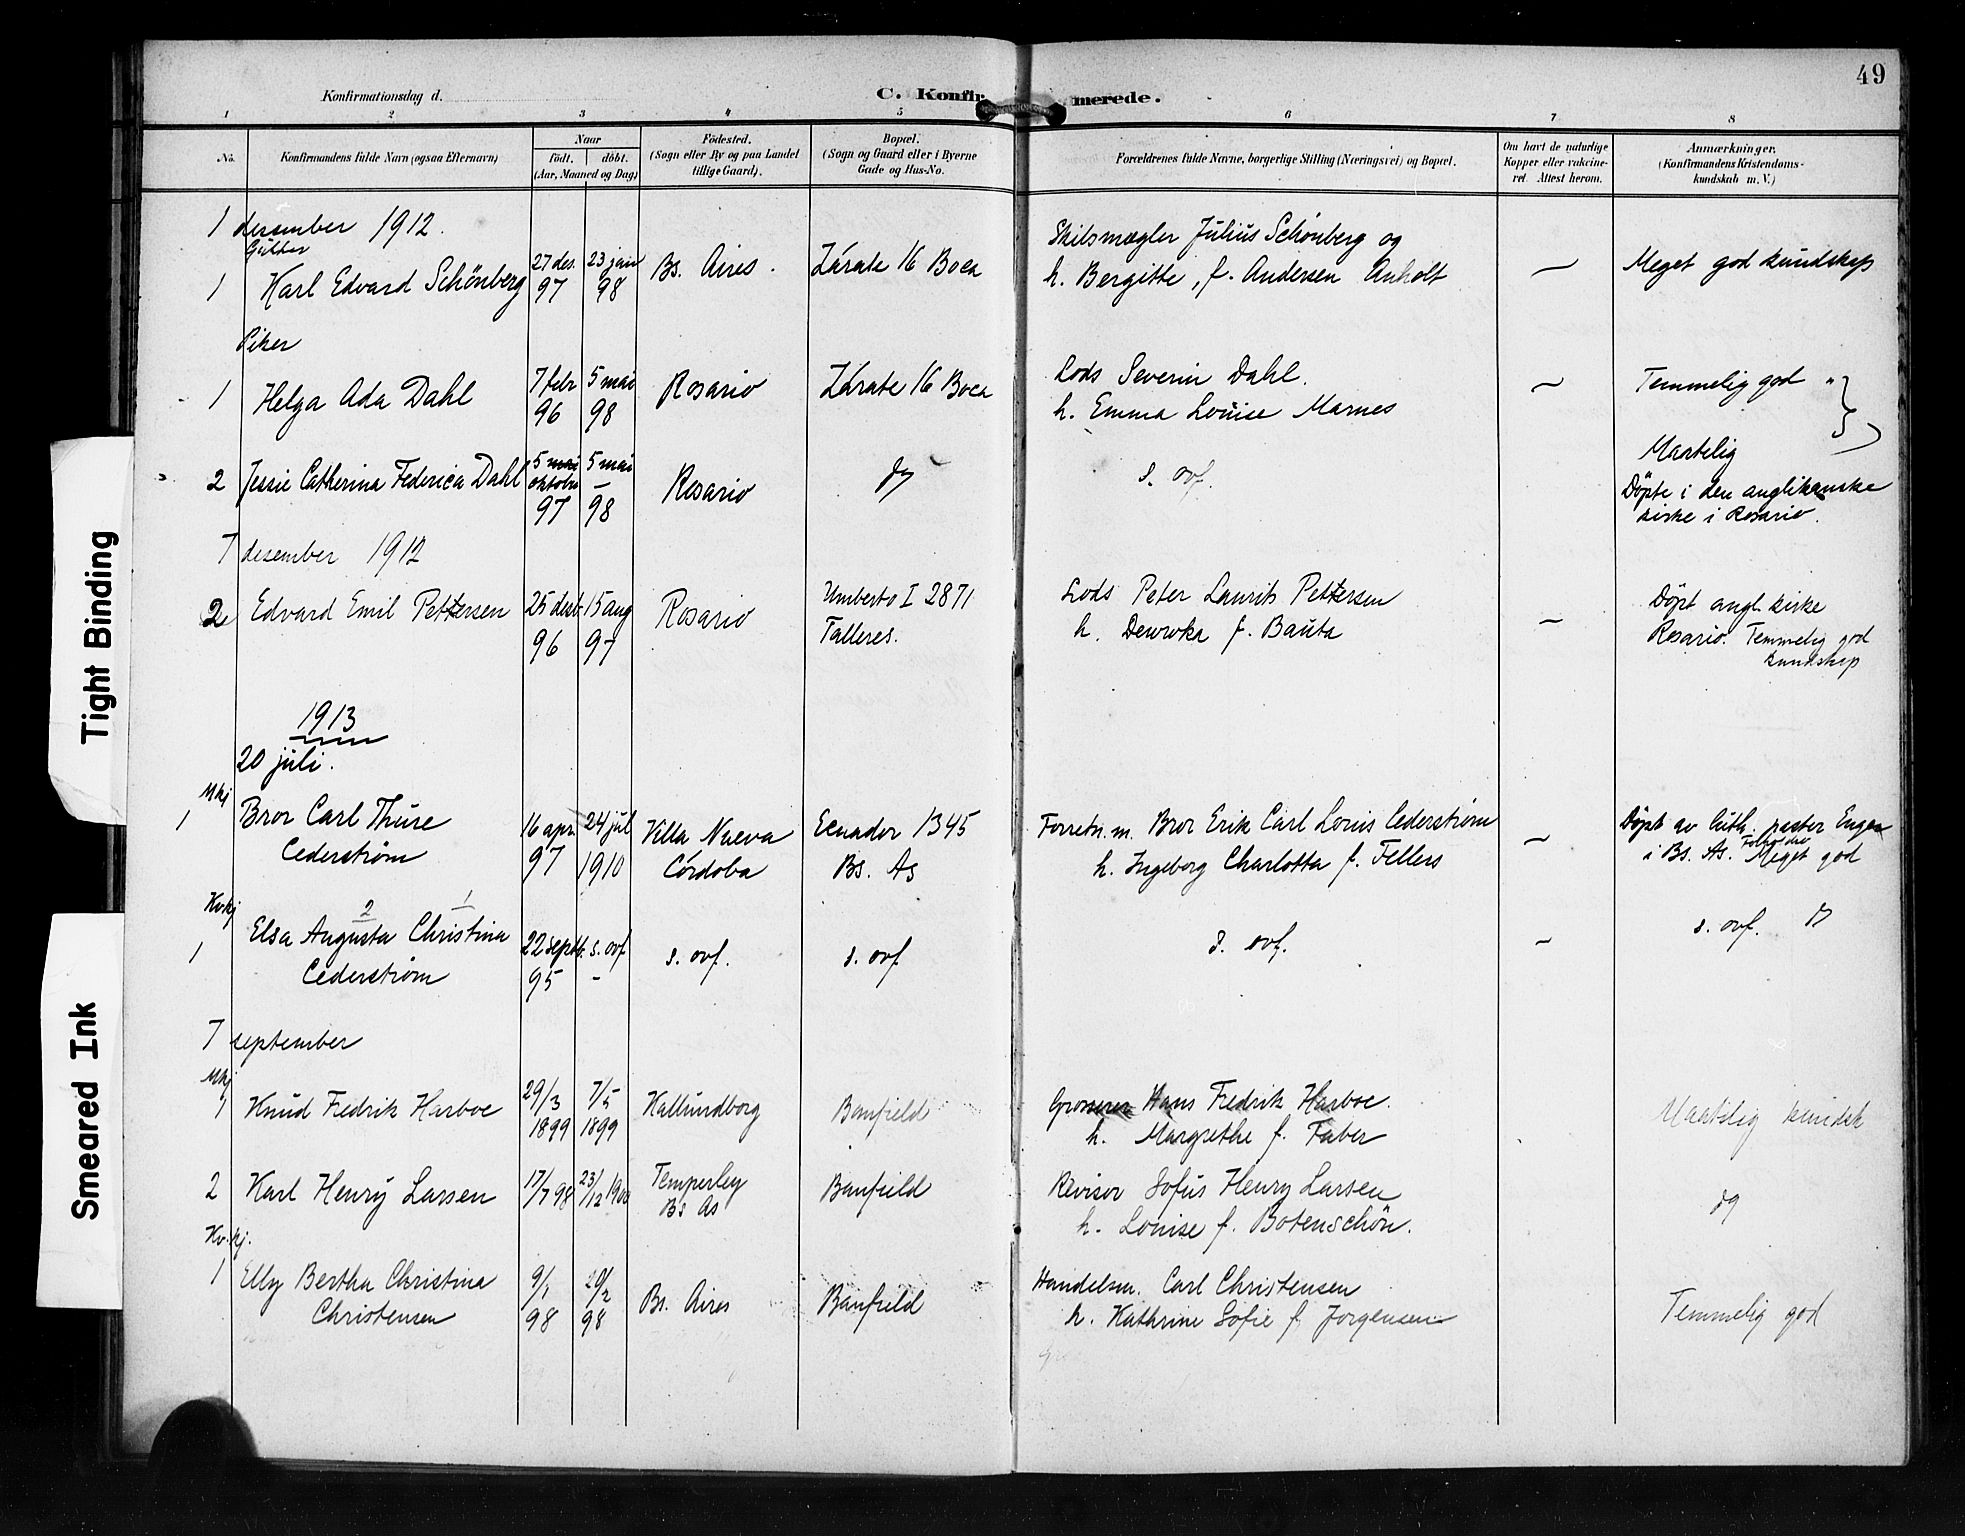 49
Konfirmationsdag d.
C. Konfir merede.
1 2 3 4 5 6 7 8
No.
Konfirmandens fulde Navn (ogsaa Efternavn)
Naar
födt. döbt.
(Aar, Maaned og Dag)
Födested.
(Sogn eller By og paa Landet
tillige Gaard).
Bopæl.
(Sogn og Gaard eller i Byerne
Gade og Hus-No.
Forældrenes fulde Navne, borgerlige Stilling (Næringsvei) og Bopæl.
Om havt de naturlige
Kopper eller vakcine-
ret Attest herom.
Anmærkninger.
(Konfirmandens Kristendoms-
kundskab m. V.)
1 desember 1912.
Gutter
1 Karl Edvard Schönberg
27 des. 97
23 jan 98
Bs. Aires.
Zárate 16 Boca
Skibsmægler Julius Schönberg og
h. Bergitte, f. Andersen Anholt
Meget god kundskap
Piker
1 Helga Ada Dahl
7 febr 96
5 mai 98
Rosario
Zárate 16 Boca
Lods Severin Dahl.
h. Emma Louise Marnes
Temmelig god "
2 Jessie Catherina Federica Dahl
5 mai
oktober
97
5 mai
98
Rosario
dg
s. ovf.
Maatelig
Döpte i den anglikanske
kirke i Rosario.
7 desember 1912
2 Edvard Emil Pettersen
25 desb. 96
15 aug 97
Rosario
Umberto I 2871
Talleres.
Lods Peter Laurits Pettersen
h. f. Bauta
Döpt angl. kirke
Rosario. Temmelig god
kundskap
1913
20 juli.
Mkj
1 Bror Carl Thure
Cederström
16 apr. 97
24 jul 1910
Villa Nueva
Córdoba
Ecuador 1345
Bs. As
Forretn. m. Bror Erik Carl Louis Cederström
h. Ingeborg Charlotta f. Fellers
Döpt av luth. pastor
i Bs. As. Meget god
Kvkj
2 1
1 Elsa Augusta Christina
Cederström
22 septb. 95
s. ovf.
s. ovf.
s. ovf
s. ovf.
s. ovf. D
7 september
Mkj
1 Knud Fredrik Harboe
29/3 1899
7/5 1899
Kallundborg
Banfield
Grosserer Hans Fredrik Harboe.
h. Margrethe f. Faber
Maatelig kundsk
2 Karl Henry Larsen
17/7 98
23/12 1900
Temperley
Bs As
Banfield
Revisor Sofus Henry Larsen
h. Louise f. Botenschön.
dg
Kv. kj.
1 Elly Bertha Christina
Christensen
9/1 98
20/2 98
Bs. Aires
Banfield
Handelsm. Carl Christensen
h. Kathrine Sofie f. Jorgensen
Temmelig god
Tight Binding
Smeared Ink